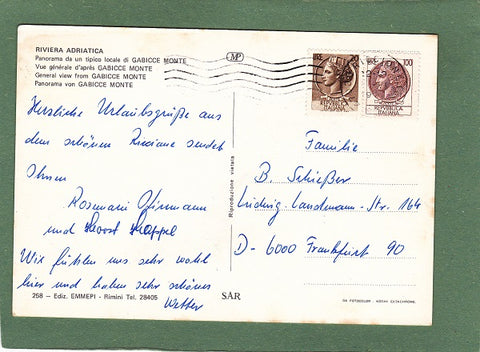 RIVIERA ADRIATICA
Panorama da un tipico locale di GABICCE MONTE
Vue générale d'après GABICCE MONTE
General view from GABICCE MONTE
Panorama von GABICCE MONTE
MP
100
REPVBBLICA
ITALIANA
Herzliche Urlaubsgrüße aus
dem schönen Riccione sendet
Ihnen
Rosemarie
und Horst
Wir fühlen uns sehr wohl
hier und haben sehr schönes
Wetter
258 - Ediz. EMMEPI - Rimini Tel. 28405
SAR
Riproduzione vietata
Familie
B. Schießer
Ludwig-Landmann-Str. 164
D-6000 Frankfurt 90